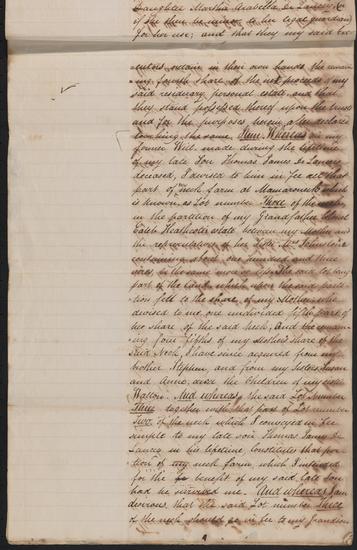 Daughter Martha Arabella De Lancey, or
if she then be minor to her legal guardian
for her use; and that they my said Exe-
cutors, retain in their own hands the remain
ing fourth share of the net proceeds of my
said residuary personal estate and that
they stand possessed thereof upon the trusts
and for the purposes herein after declared
touching the same. Item. Whereas in my
former Will, made during the lifetime
of my late Son Thomas James De Lancey
deceased, I devised to him in fee all that
part of my neck farm at Mamaroneck which
is known as Lot number Three of the
in the partition of my Grand father Colonel
Caleb Heathcotes estate between my Mother and
the representatives of her Sister Mrs Johnston
containing about one hundred and three
acres be the same more or less. The said Lot being
part of the land which upon the said parti-
tion fell to the share of my Mother, who
devised to me one undivided fifth part of
her share of the said Neck, and the remain-
ing four fifths of my Mother's share of the
said Neck, I have since acquired from my
brother Stephen, and from my Sisters Susan
and Anne, and the Children of my sister
Walton. And whereas the said Lot number
Three together with that part of Lot number
Two of the neck which I conveyed in fee
simple to my late son Thomas James De
Lancey in his lifetime, constitutes that por-
tion of my neck farm which I intended
for the benefit of my said late Son
had he survived me. And whereas I am
desirous, that the said Lot number Three
of the neck should go in fee to my Grandson